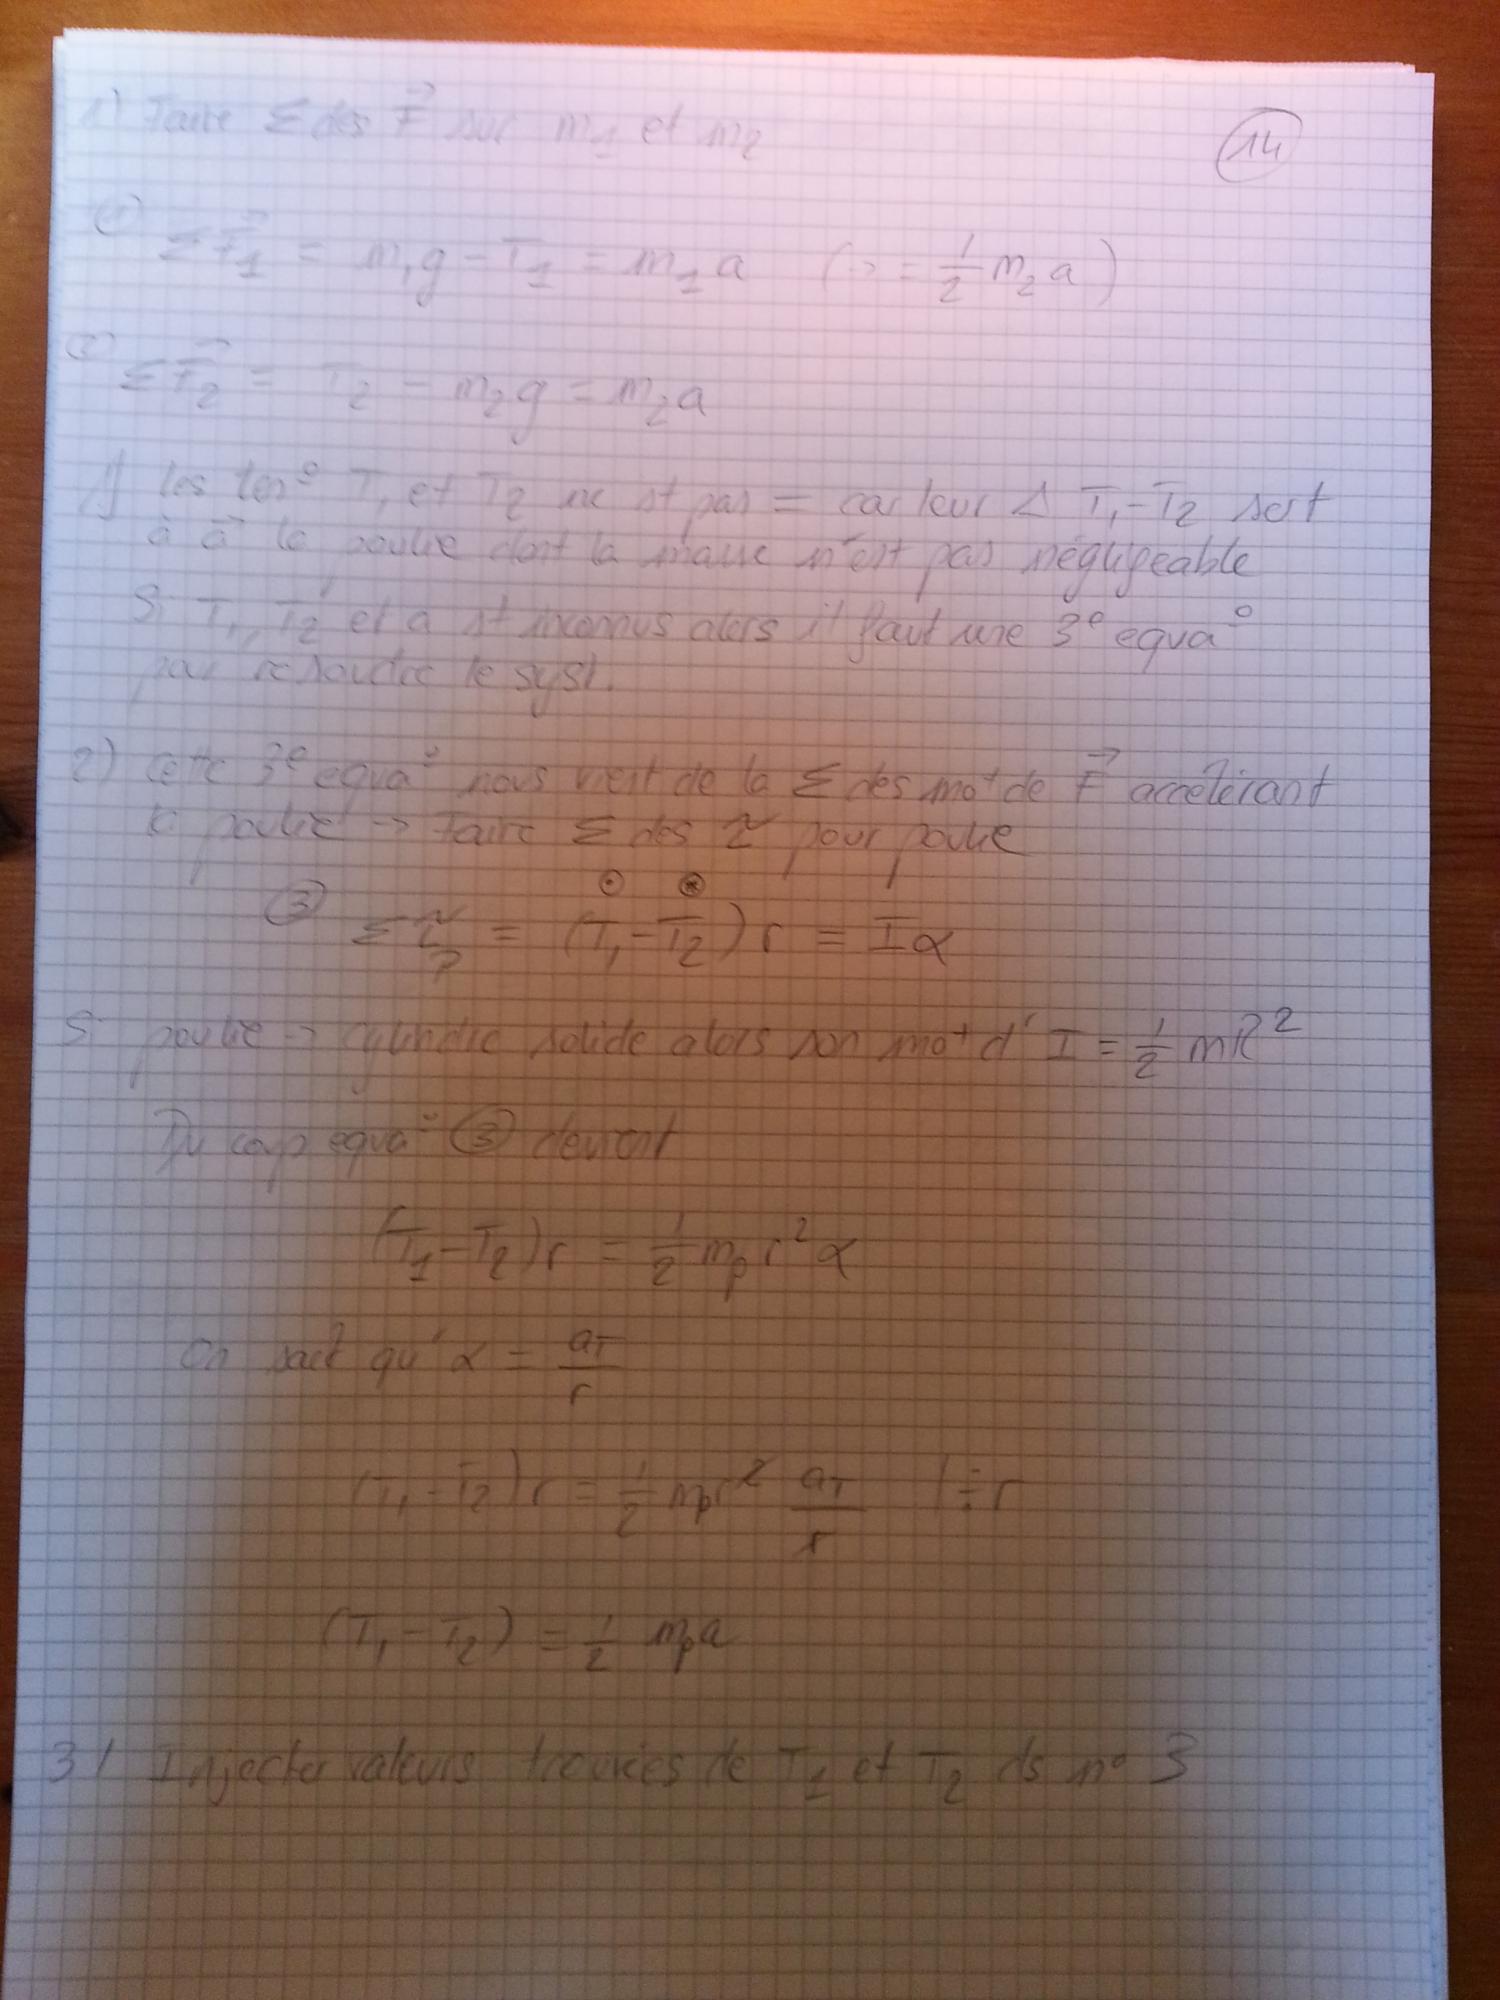 1) Faire Σ des F⃗ sur m₁ et m₂
14
① ΣF⃗₁ = m₁g - T₁ = m₁a (→ = 1/2 m₂a)
② ΣF⃗₂ = T₂ - m₂g = m₂a
les ten° T₁ et T₂ ne st pas = car leur Δ T₁-T₂ sert
à a⃗ la poulie dont la masse n'est pas négligeable
Si T₁, T₂ et a st inconnus alors il faut une 3e equa°
pour résoudre le syst.
2) Cette 3e equa° nous vient de la Σ des mot de F⃗ accélérant
la poulie → Faire Σ des τ pour poulie
⊙ ⊗
③ Στ = (T₁-T₂)r = Iα
Si poulie → cylindre solide alors son mot d'I = 1/2 mR²
Du coup equa° ③ devient
(T₁-T₂)r = 1/2 mₚr²α
On sait qu'α = aT/r
(T₁-T₂)r = 1/2 mₚr² aT/r |÷r
(T₁-T₂) = 1/2 mₚa
3) Injecter valeurs trouvées de T₁ et T₂ ds n° 3